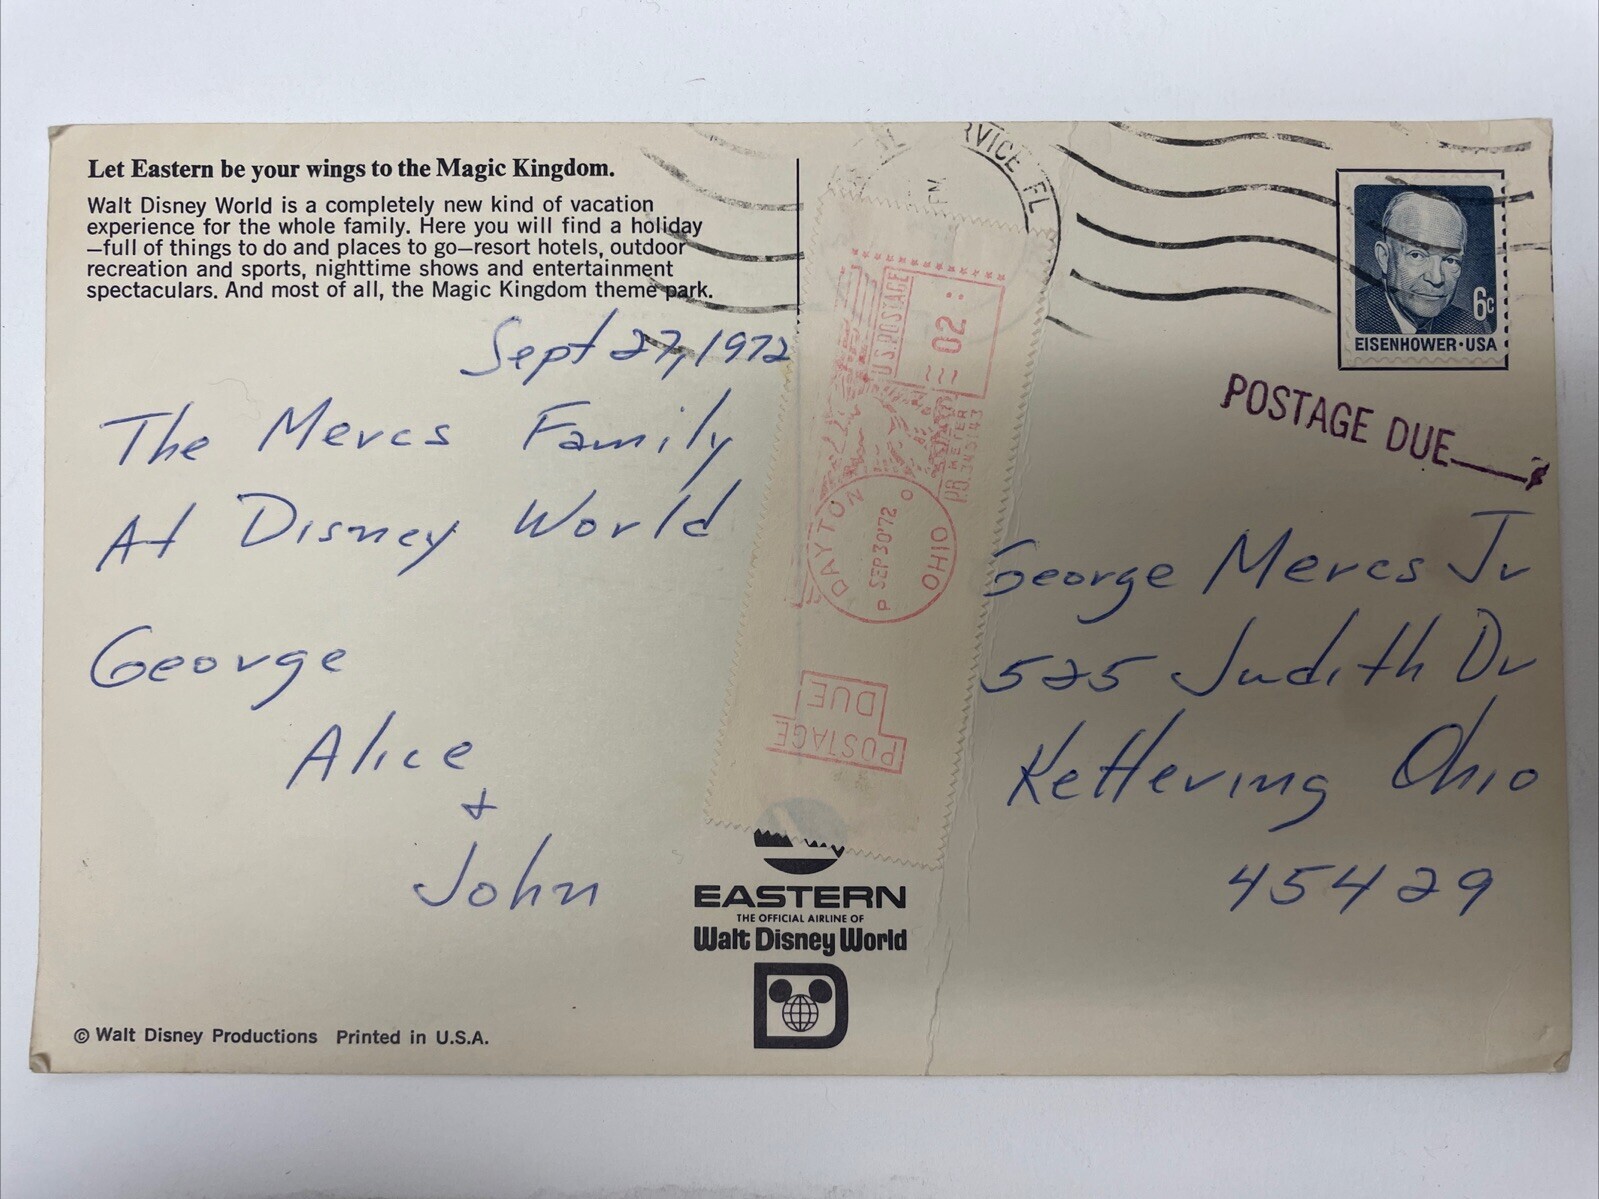 Let Eastern be your wings to the Magic Kingdom.
Walt Disney World is a completely new kind of vacation
experience for the whole family. Here you will find a holiday
—full of things to do and places to go—resort hotels, outdoor
recreation and sports, nighttime shows and entertainment
spectaculars. And most of all, the Magic Kingdom theme park.
Sept 27, 1972
The Mercs Family
At Disney World
George
Alice
+
John
© Walt Disney Productions Printed in U.S.A.
RVICE FL
PM
U.S. POSTAGE
02
METER
DAYTON
OHIO
P SEP 30 '72
POSTAGE
DUE
EASTERN
THE OFFICIAL AIRLINE OF
Walt Disney World
6c
EISENHOWER · USA
POSTAGE DUE ¢
George Mercs Jr
525 Judith Dr
Kettering Ohio
45429